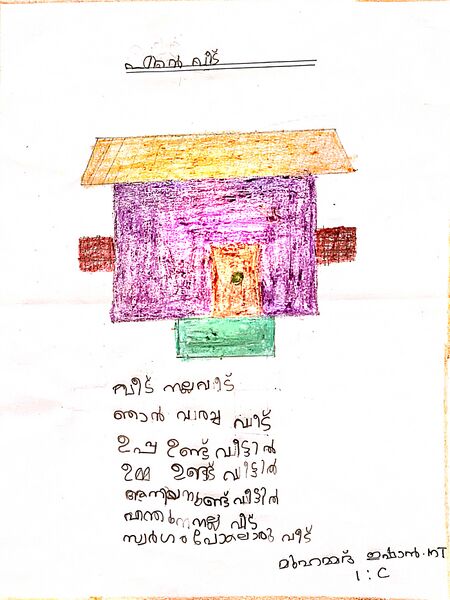 എൻ്റെ വീട്
വീട് നല്ല വീട്
ഞാൻ വരച്ച വീട്
ഉപ്പ ഉണ്ട് വീട്ടിൽ
ഉമ്മ ഉണ്ട് വീട്ടിൽ
അനിയനുണ്ട് വീട്ടിൽ
എന്തു നല്ല വീട്
സ്വർഗം പോലൊരു വീട്
മുഹമ്മദ് ഇഷാൻ.MT
1:C